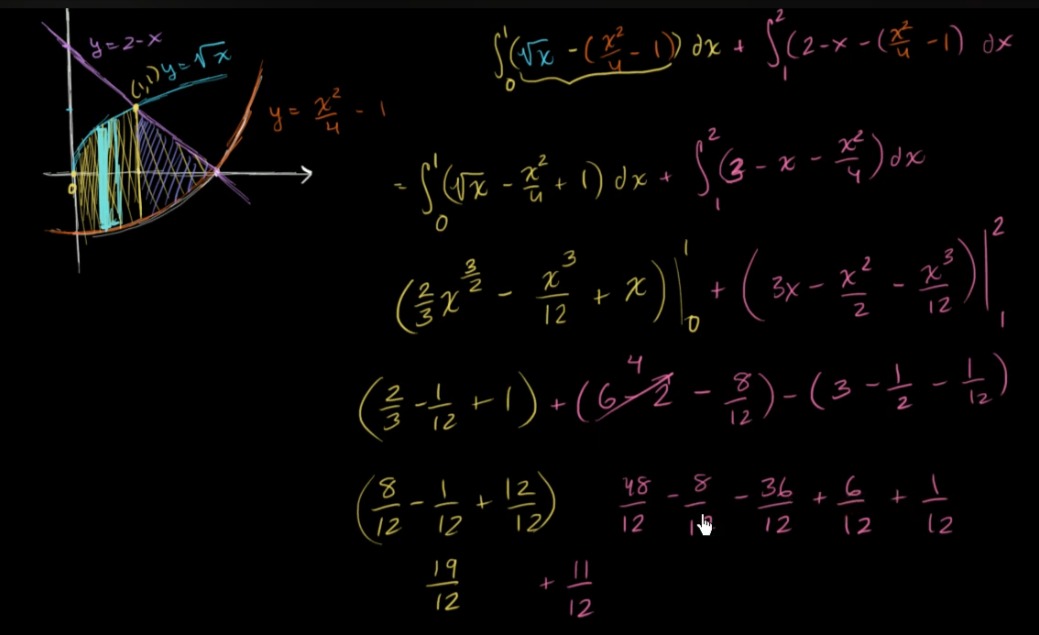 y = 2 - x
y = √x
(1,1)
y = x²/4 - 1
0
∫₀¹ (√x - (x²/4 - 1)) dx + ∫₁² (2 - x - (x²/4 - 1) dx
= ∫₀¹ (√x - x²/4 + 1) dx + ∫₁² (3 - x - x²/4) dx
(2/3 x^(3/2) - x³/12 + x) |₀¹ + (3x - x²/2 - x³/12) |₁²
4
(2/3 - 1/12 + 1) + (6 - 2 - 8/12) - (3 - 1/2 - 1/12)
(8/12 - 1/12 + 12/12) 48/12 - 8/12 - 36/12 + 6/12 + 1/12
19/12 + 11/12